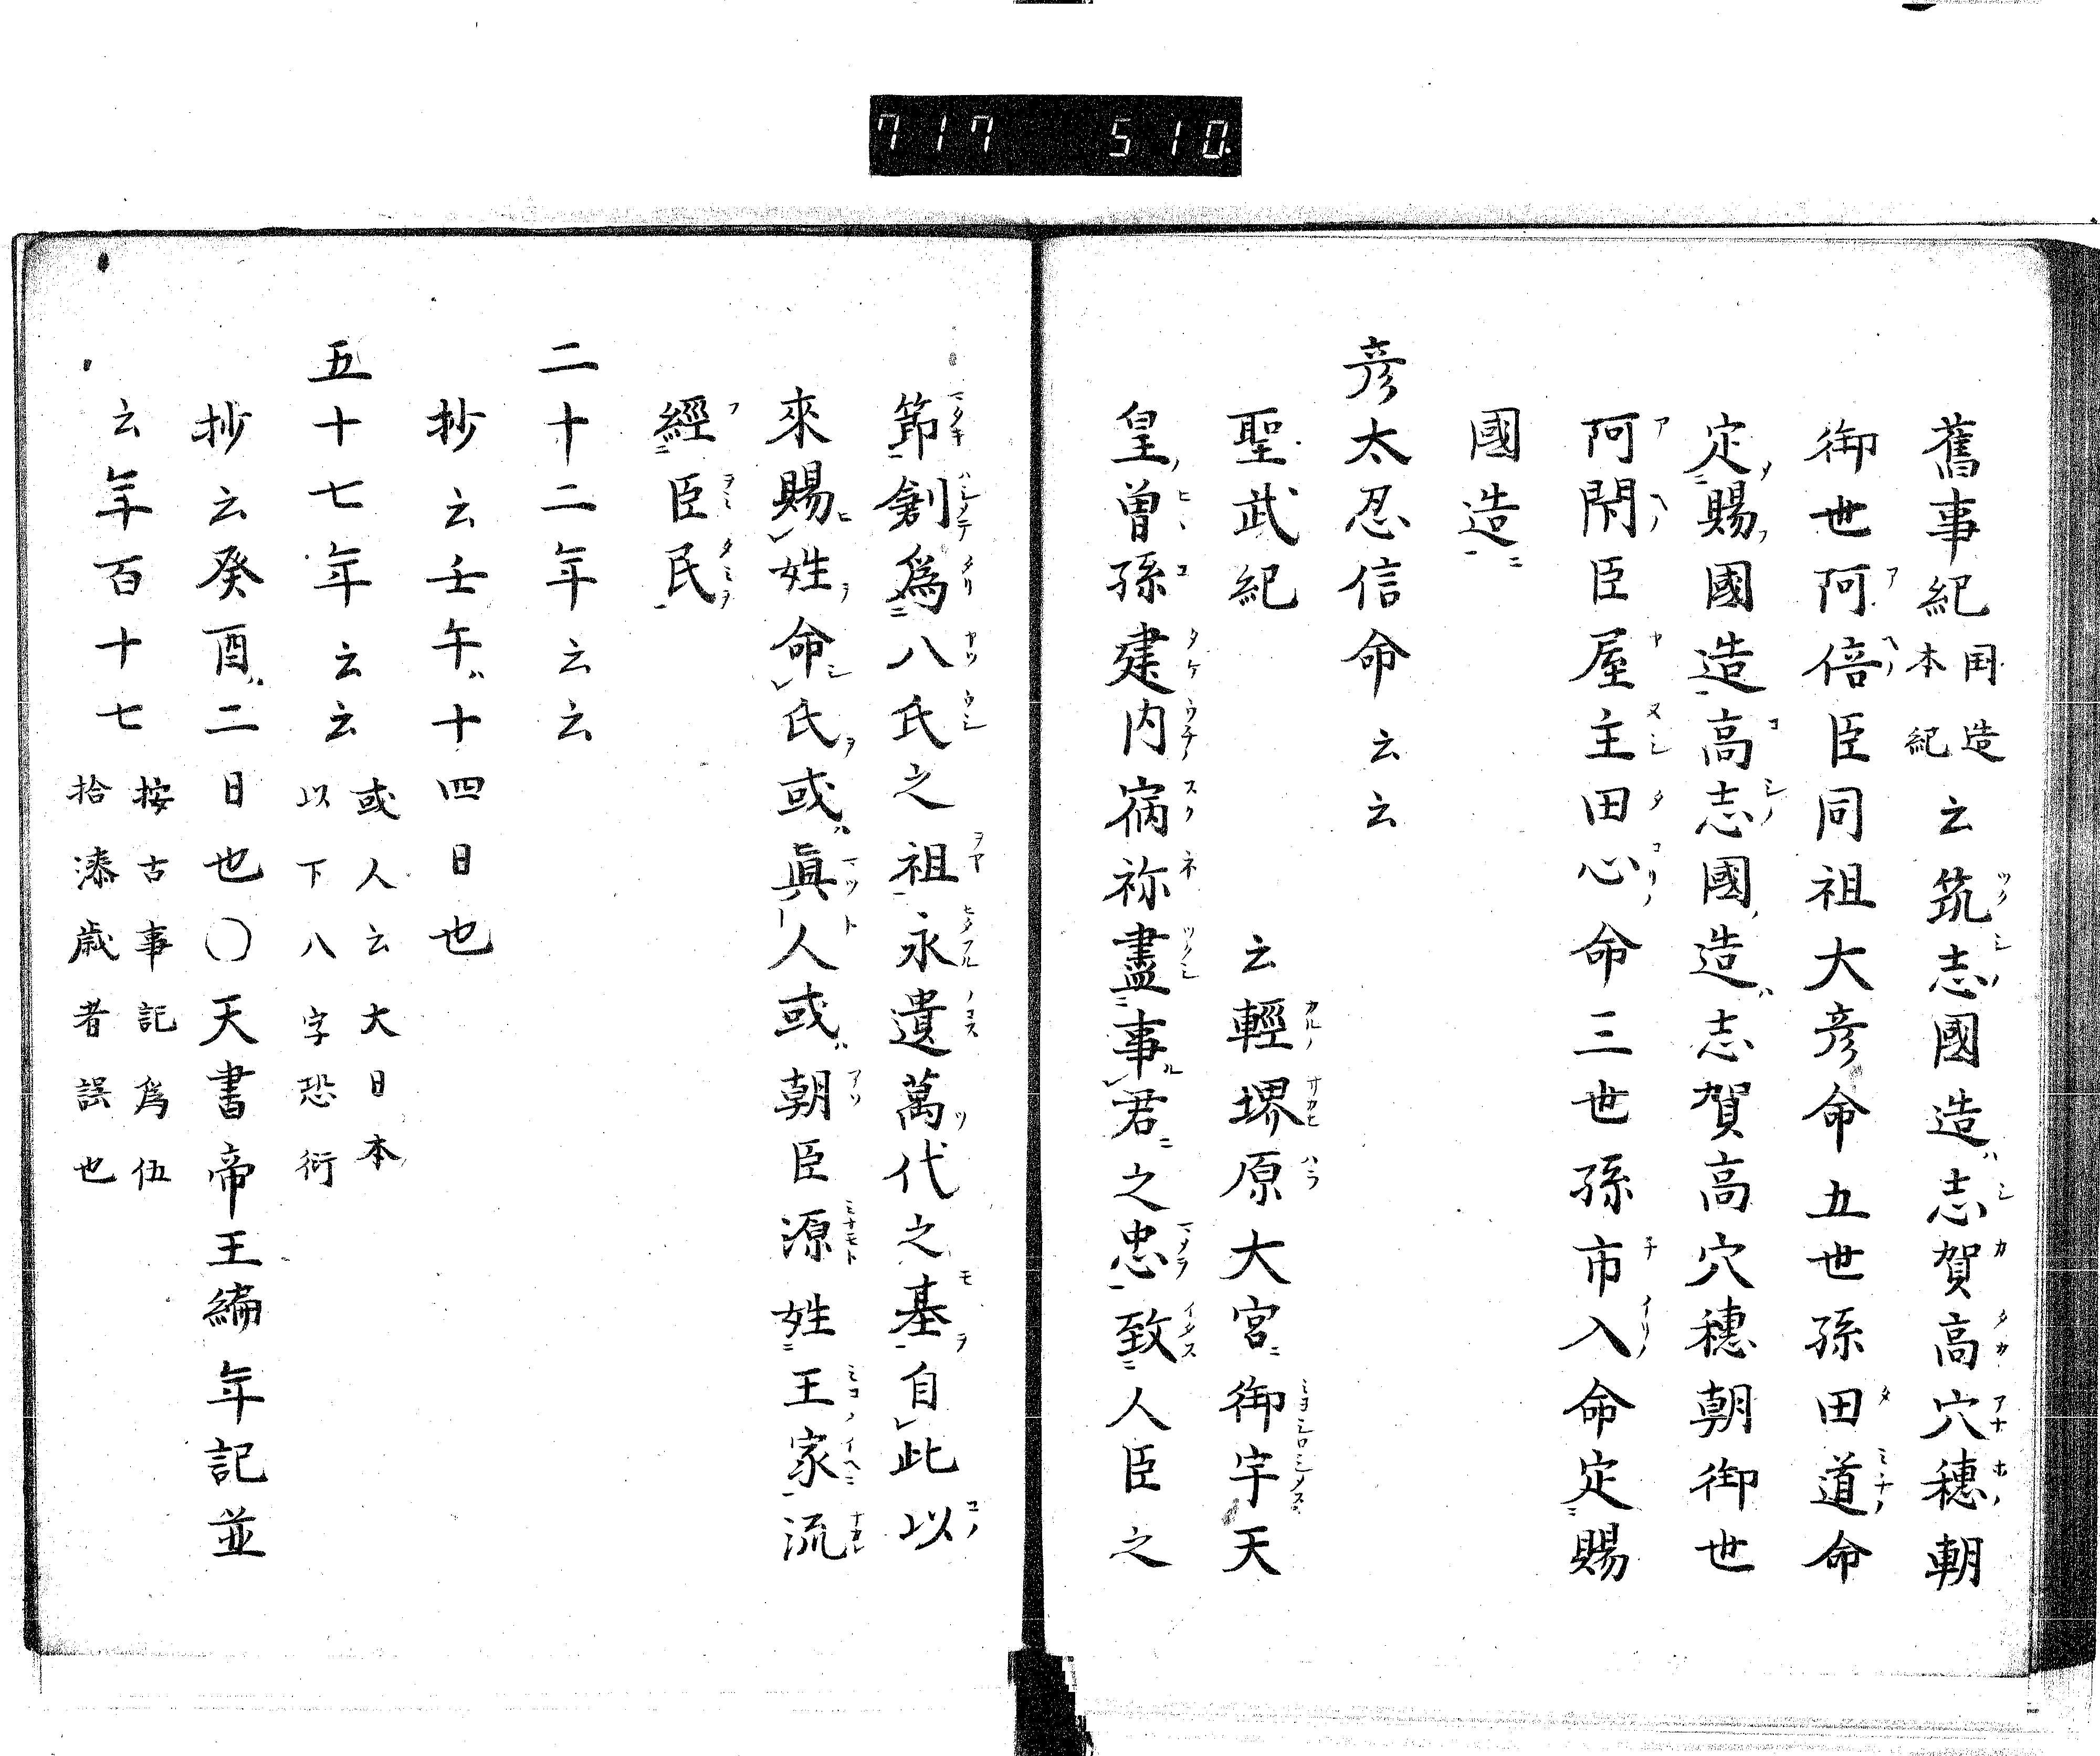 717 510
舊事紀国造本紀云筑志國造志賀高穴穗朝
御世阿倍臣同祖大彦命五世孫田道命
定賜國造高志國造志賀高穴穗朝御世
阿閇臣屋主田心命三世孫市入命定賜
國造
彦太忍信命云云
聖武紀 云輕堺原大宮御宇天
皇曽孫建内宿祢盡事君之忠致人臣之
節創爲八氏之祖永遺萬代之基自此以
來賜姓命氏或眞人或朝臣源姓王家流
經臣民
二十二年云云
抄云壬午十四日也
五十七年云云或人云大日本以下八字恐衍
抄云癸酉二日也〇天書帝王編年記並
云年百十七按古事記爲伍拾漆歳者誤也